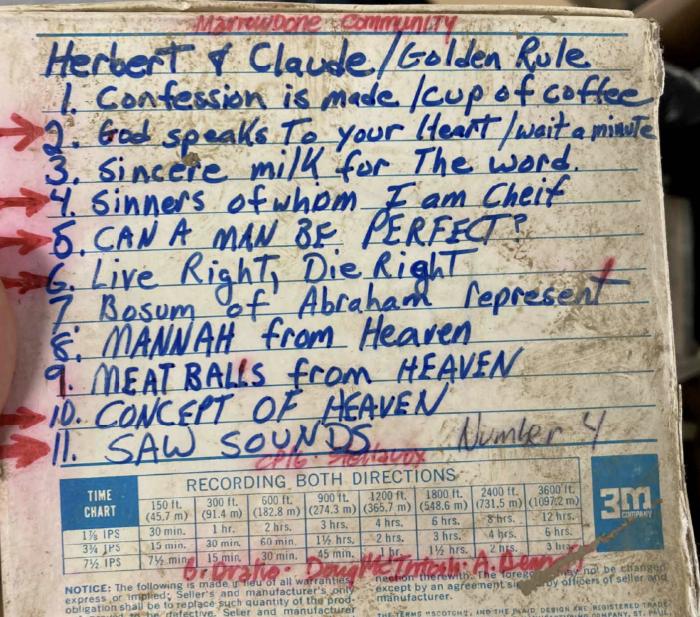 Marrowbone Community
Herbert & Claude/Golden Rule
1. Confession is made /cup of coffee
2. God speaks To your Heart/wait a minute
3. Sincere milk for The word.
4. Sinners of whom I am Cheif
5. CAN A MAN BE PERFECT?
6. Live Right, Die Right
7 Bosum of Abraham represent
8. MANNAH from Heaven
9. MEATBALLS from HEAVEN
10. CONCEPT OF HEAVEN
11. SAW SOUNDS Number 4
RECORDING BOTH DIRECTIONS
TIME CHART
150 ft. (45.7 m) 300 ft. (91.4 m) 600 ft. (182.8 m) 900 ft. (274.3 m) 1200 ft. (365.7 m) 1800 ft. (548.6 m) 2400 ft. (731.5 m) 3600 ft. (1097.2 m)
1⅞ IPS 30 min. 1 hr. 2 hrs. 3 hrs. 4 hrs. 6 hrs. 8 hrs. 12 hrs.
3¾ IPS 15 min. 30 min. 60 min. 1½ hrs. 2 hr. 3 hrs. 4 hrs. 6 hrs.
7½ IPS 7½ min. 15 min. 30 min. 45 min. 1 hr. 1½ hrs. 2 hrs. 3 hrs.
3m
COMPANY
B. Drake. Doug McIntosh. A. Dean
NOTICE: The following is made in lieu of all warranties,
express or implied: Seller's and manufacturer's only
obligation shall be to replace such quantity of the prod-
to be defective. Seller and manufacturer
nection therewith. The foregoing may not be changed
except by an agreement signed by officers of seller and
manufacturer.
THE TERMS "SCOTCH", AND THE PLAID DESIGN ARE REGISTERED TRADE-
COMPANY, ST. PAUL,